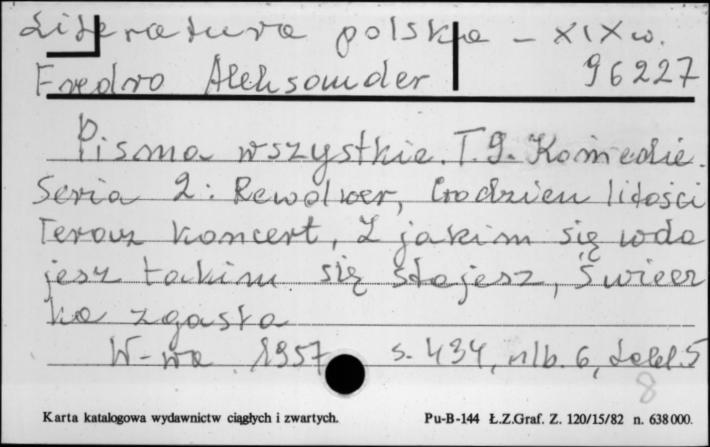 Literatura polska - XIX w.
Fredro Aleksander 96227
Pisma wszystkie. T. 9. Komedie.
Seria 2: Rewolwer, Godzien litości
Teraz koncert, Z jakim się wda
jesz takim się stajesz, Świecz
ka zgasła
W-wa 1957 s. 434, nlb. 6, tabl. 5
8
Karta katalogowa wydawnictw ciągłych i zwartych. Pu-B-144 Ł.Z.Graf. Z. 120/15/82 n. 638000.